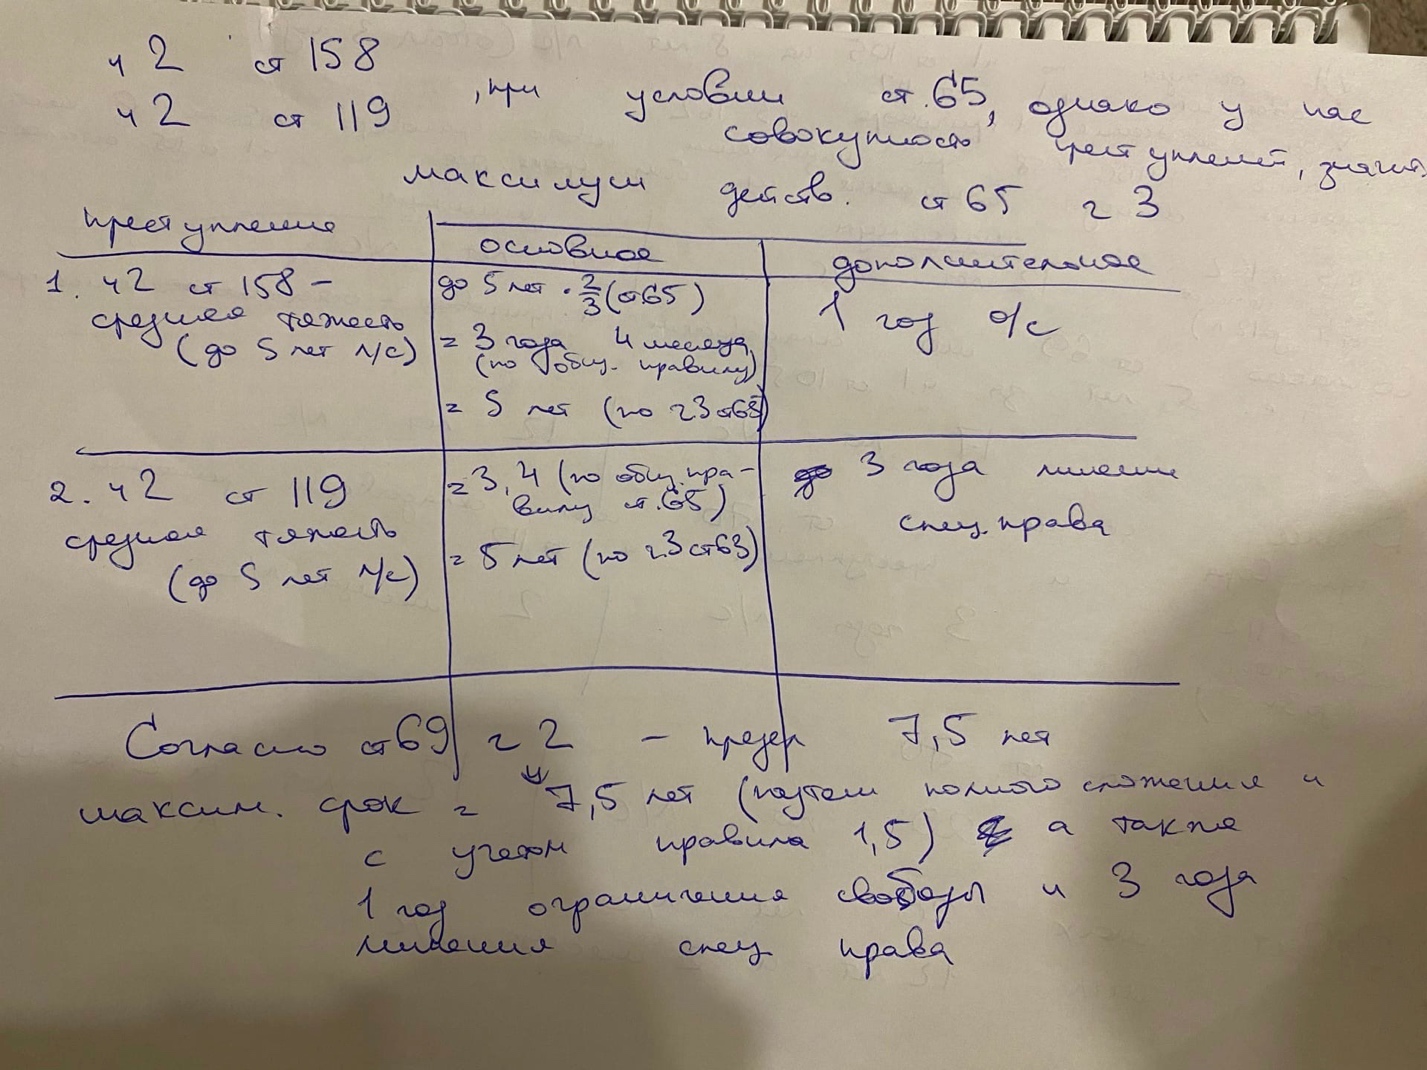 ч 2 ст 158
ч 2 ст 119 , при условии ст. 65, однако у нас
совокупность преступлений, значит
максимум действ. ст 65 ч 3
преступление основное дополнительное
1. ч2 ст 158 –
средняя тяжесть
(до 5 лет л/с)
до 5 лет · 2/3 (ст65)
= 3 года 4 месяца
(по общ. правилу)
= 5 лет (по ч3 ст65)
1 год о/с
2. ч2 ст 119
средняя тяжесть
(до 5 лет л/с)
= 3,4 (по общ. пра-
вилу ст. 65)
= 5 лет (по ч.3 ст63)
3 года лишение
спец. права
Согласно ст69 ч 2 – 7,5 лет
максим. срок = 7,5 лет (путем полного сложения и
с учетом правила 1,5) а также
1 год ограничения свободы и 3 года
лишения спец права